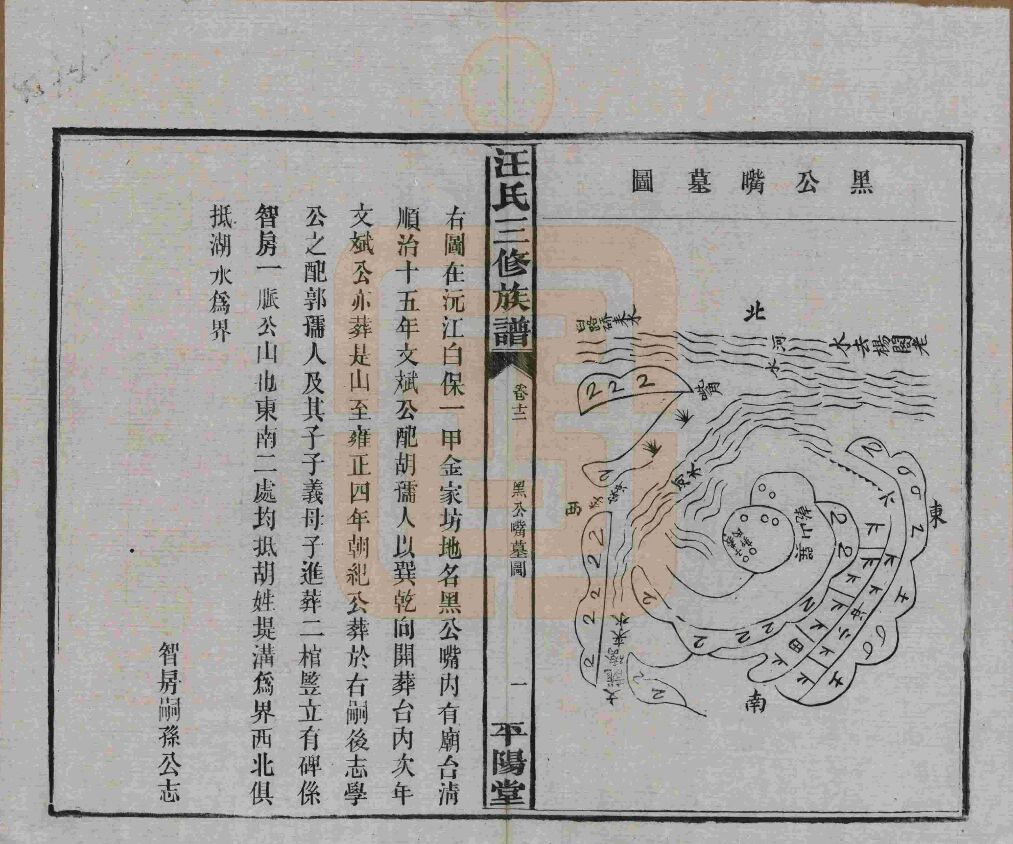 黑公嘴墓圖
北
東
南
西
河水
水去楊閣老
汪氏三修族譜
卷十二
黑公嘴墓圖
一
平陽堂
右圖在沅江白保一甲金家坊地名黑公嘴內有廟台清
順治十五年文斌公配胡孺人以巽乾向開葬台內次年
文斌公亦葬是山至雍正四年朝紀公葬於右嗣後志學
公之配郭孺人及其子子義母子進葬二棺豎立有碑係
智房一脈公山也東南二處均抵胡姓堤溝為界西北俱
抵湖水為界
智房嗣孫公志